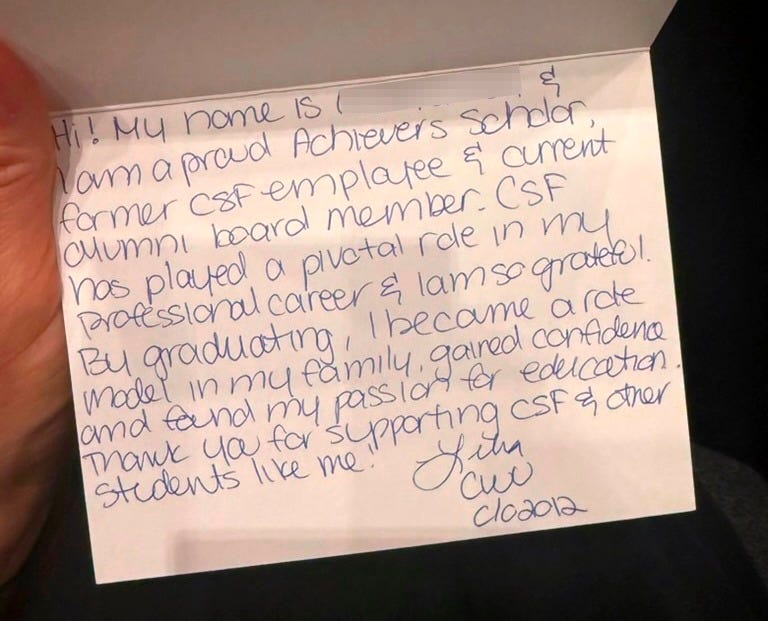 Hi! My name is &
I am a proud Achievers Scholar,
former CSF employee & current
alumni board member. CSF
has played a pivotal role in my
professional career & I am so grateful.
By graduating, I became a role
model in my family, gained confidence
and found my passion for education.
Thank you for supporting CSF & other
students like me!
CWU
c/o 2012